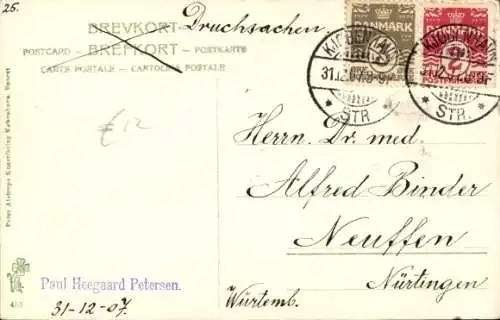 25.
BREVKORT
Drucksachen.
POSTCARD - BREFKORT - POSTKARTE
CARTE POSTALE - CARTOLINA POSTALE
DANMARK
KJØBENHAVN
31.12.07.
STR.
2
STR.
£12
Herrn. Dr. med.
Alfred Binder
Neuffen
Nürtingen
Württemb.
Peter Alstrups Kunstforlag København. Eneret
Paul Heegaard Petersen.
31-12-07.